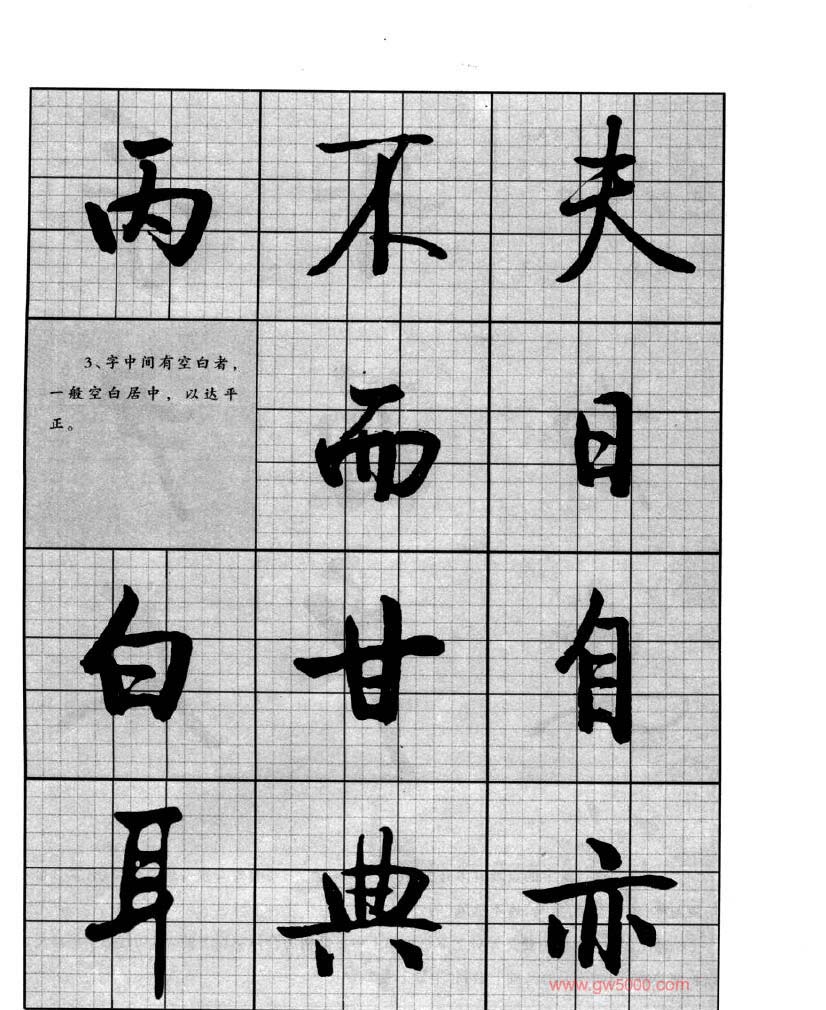 丙 不 夫
3、字中间有空白者，
一般空白居中，以达平
正。
而 日
白 甘 自
耳 典 亦
www.gw5000.com